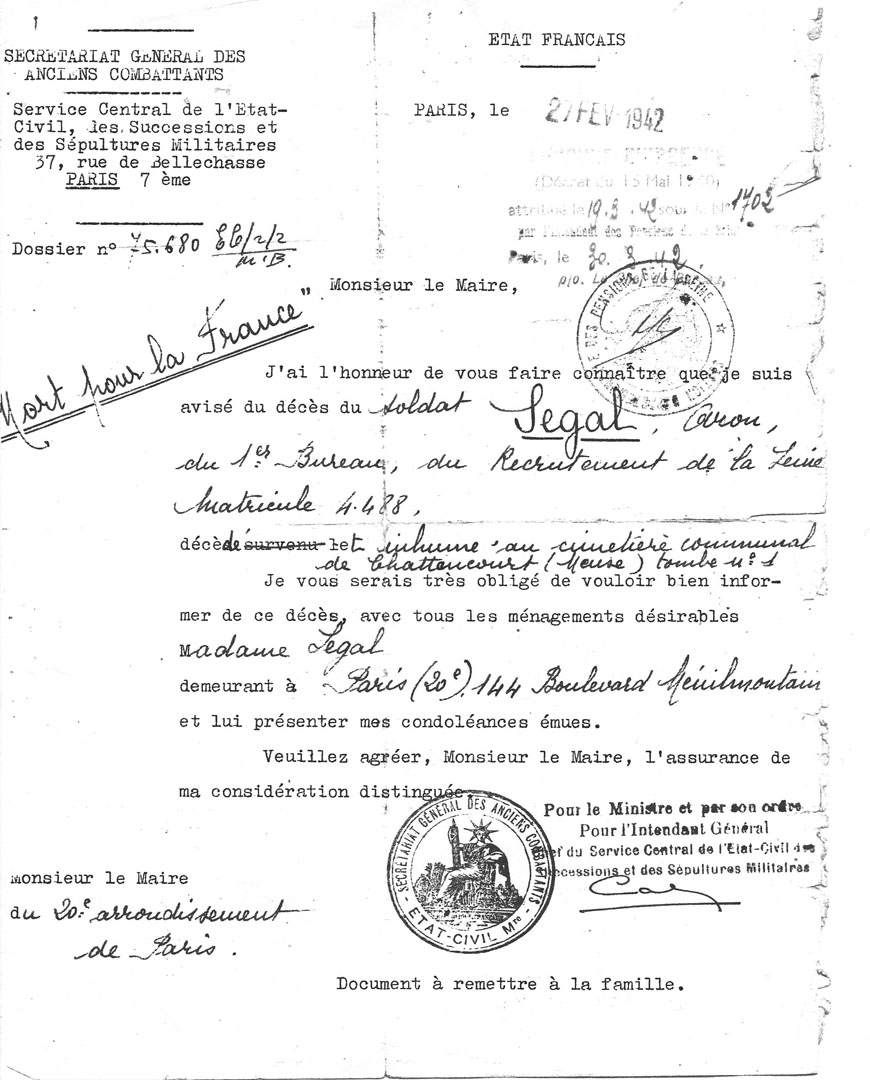 SECRETARIAT GENERAL DES
ANCIENS COMBATTANTS
Service Central de l'Etat-
Civil, les Successions et
des Sépultures Militaires
37, rue de Bellechasse
PARIS 7 ème
Dossier n° 45.680 EC/2/2
M.B.
ETAT FRANCAIS
PARIS, le 27 FEV 1942
(Décret du 13 Mai 1940)
attribuée le 19.3.42 sous le N° 1702
par l'Intendant des Pensions
Paris, le 20.3.42
Monsieur le Maire,
DES PENSIONS
"Mort pour la France"
J'ai l'honneur de vous faire connaître que je suis
avisé du décès du soldat Segal, Aron,
du 1er Bureau, du Recrutement de la Seine
Matricule 4.488,
décèdé survenu le et inhumé au cimetière communal
de Chattencourt (Meuse) tombe n° 1
Je vous serais très obligé de vouloir bien infor-
mer de ce décès, avec tous les ménagements désirables
Madame Segal
demeurant à Paris (20e) 144 Boulevard Ménilmontain
et lui présenter mes condoléances émues.
Veuillez agréer, Monsieur le Maire, l'assurance de
ma considération distinguée.
SECRÉTARIAT GÉNÉRAL DES ANCIENS COMBATTANTS
ETAT-CIVIL Mre
Pour le Ministre et par son ordre
Pour l'Intendant Général
Chef du Service Central de l'Etat-Civil des
Successions et des Sépultures Militaires
Monsieur le Maire
du 20e arrondissement
de Paris.
Document à remettre à la famille.